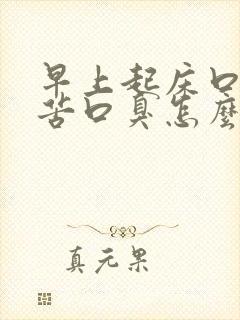 早上起床口
苦口臭怎麼
真元果